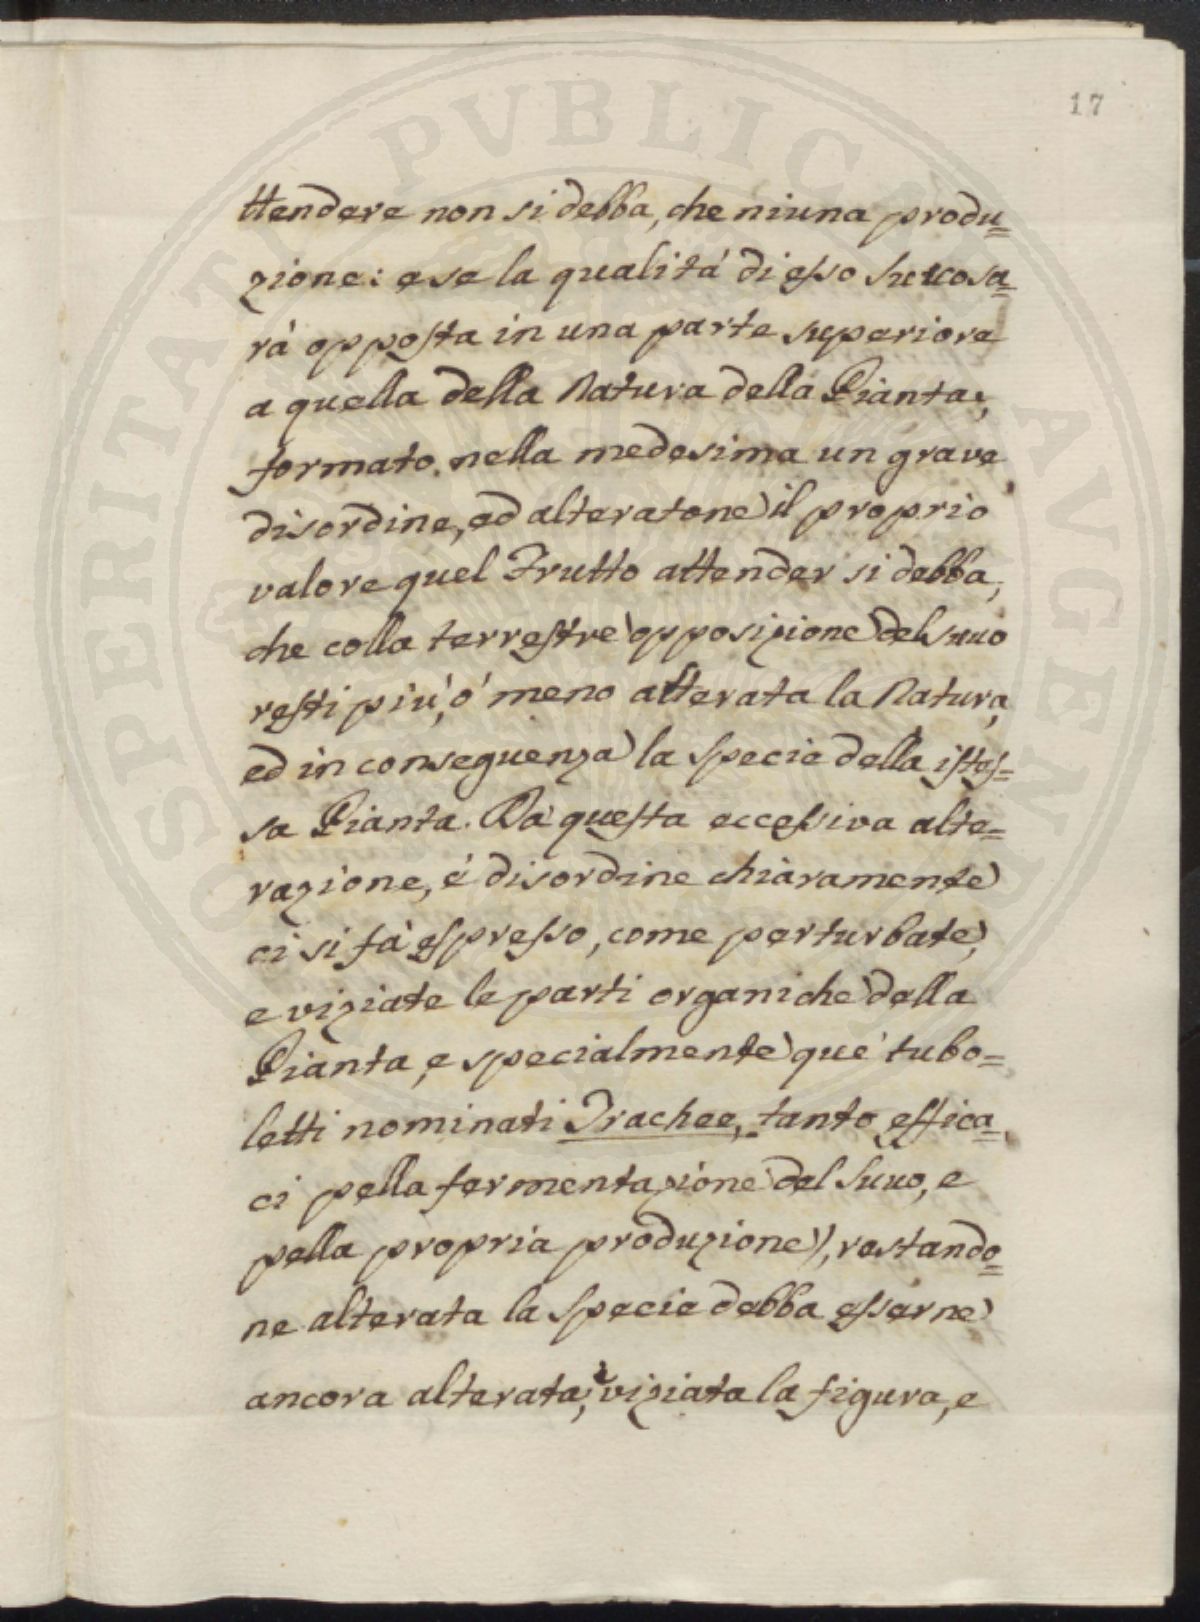 17
ttendere non si debba, che niuna produ=
zione: e se la qualitá di esso succo sa=
rá opposta in una parte superiore
a quella della Natura della Pianta;
formato nella medesima un grave
disordine, ed alteratone il proprio
valore quel Frutto attender si debba,
che colla terrestre opposizione del succo
resti piú, ó meno alterata la Natura,
ed in conseguenza la specie della istes=
sa Pianta. Da questa eccessiva alte=
razione, é disordine chiaramente
ci si fá espresso, come perturbate,
e viziate le parti organiche della
Pianta, e specialmente que' tubo=
letti nominati Trachee, tanto effica=
ci pella fermentazione del succo, e
pella propria produzione, restando=
ne alterata la specie debba esserne
ancora alterata, è viziata la figura, e
PROSPERITATI PVBLICAE AVGENDAE